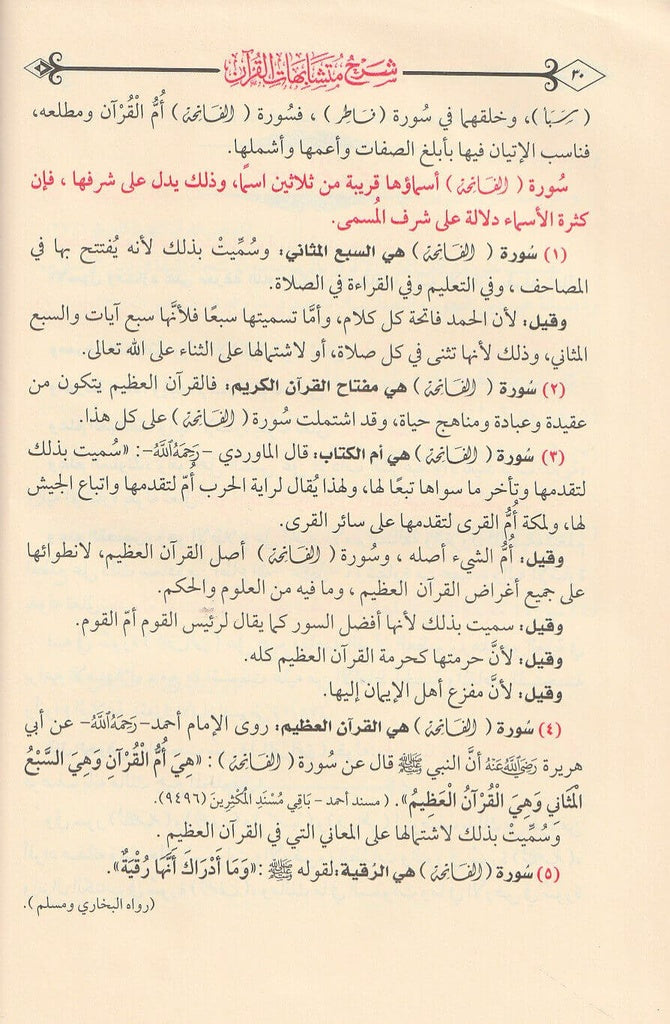 ٣٠
شرح متشابهات القرآن
( سبأ )، وخلقهما في سُورة ( فاطر ) ، فسُورة ( الفاتحة ) أُمُّ الْقُرْآن ومطلعه،
فناسب الإتيان فيها بأبلغ الصفات وأعمها وأشملها.
سُورة ( الفاتحة ) أسماؤها قريبة من ثلاثين اسمًا، وذلك يدل على شرفها ، فإن
كثرة الأسماء دلالة على شرف المُسمى.
(١) سُورة ( الفاتحة ) هي السبع المثاني: وسُمِّيتْ بذلك لأنه يُفتتح بها في
المصاحف ، وفي التعليم وفي القراءة في الصلاة.
وقيل: لأن الحمد فاتحة كل كلام، وأمَّا تسميتها سبعًا فلأنَّها سبع آيات والسبع
المثاني، وذلك لأنها تثنى في كل صلاة، أو لاشتمالها على الثناء على الله تعالى.
(٢) سُورة ( الفاتحة ) هي مفتاح القرآن الكريم: فالقرآن العظيم يتكون من
عقيدة وعبادة ومناهج حياة، وقد اشتملت سُورة ( الفاتحة ) على كل هذا.
(٣) سُورة ( الفاتحة ) هي أم الكتاب: قال الماوردي -رَحِمَهُ اللَّهُ-: «سُميت بذلك
لتقدمها وتأخر ما سواها تبعًا لها، ولهذا يُقال لراية الحرب أُمّ لتقدمها واتباع الجيش
لها، ولمكة أُمُّ القرى لتقدمها على سائر القرى.
وقيل: أُمُّ الشيء أصله ، وسُورة ( الفاتحة ) أصل القرآن العظيم، لانطوائها
على جميع أغراض القرآن العظيم ، وما فيه من العلوم والحكم.
وقيل: سميت بذلك لأنها أفضل السور كما يقال لرئيس القوم أمّ القوم.
وقيل: لأنَّ حرمتها كحرمة القرآن العظيم كله.
وقيل: لأنَّ مفزع أهل الإيمان إليها.
(٤) سُورة ( الفاتحة ) هي القرآن العظيم: روى الإمام أحمد-رَحِمَهُ اللَّهُ- عن أبي
هريرة رَضِيَ اللَّهُ عَنْهُ أنَّ النبي ﷺ قال عن سُورة ( الفاتحة ) : «هِيَ أُمُّ الْقُرْآنِ وَهِيَ السَّبْعُ
الْمَثَانِي وَهِيَ الْقُرْآنُ الْعَظِيمُ». ( مسند أحمد - بَاقِي مُسْنَدِ الْمُكْثِرِينَ (٩٤٩٦).
وَسُمِّيتْ بذلك لاشتمالها على المعاني التي في القرآن العظيم .
(٥) سُورة ( الفاتحة ) هي الرُقية:لقوله ﷺ :«وَمَا أَدْرَاكَ أَنَّهَا رُقْيَةٌ».
(رواه البخاري ومسلم ).